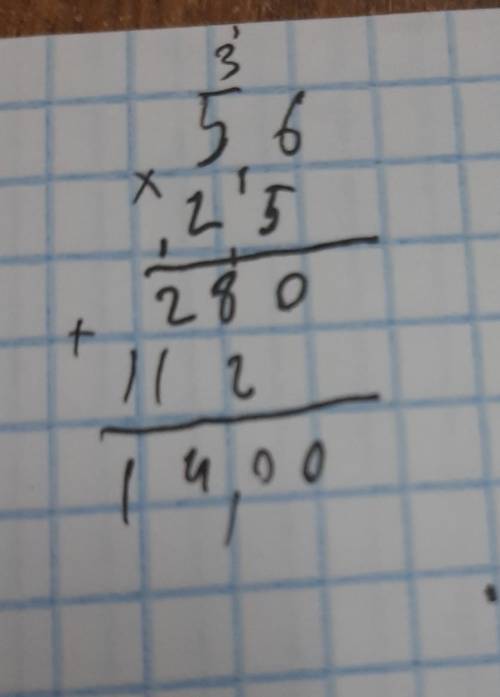 3
5 6
× 2 5
280
+
11 2
14,00